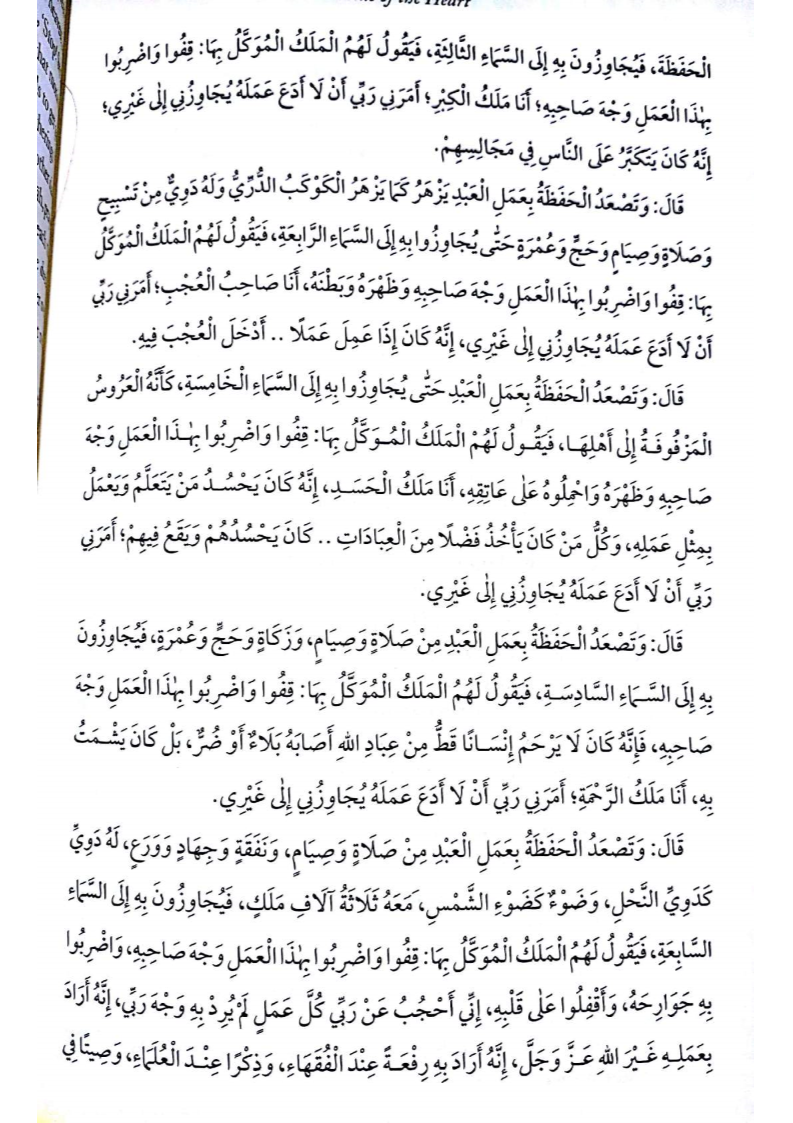 of the Heart
الْحَفَظَةَ، فَيُجَاوِزُونَ بِهِ إِلَى السَّمَاءِ الثَّالِثَةِ، فَيَقُولُ لَهُمُ الْمَلَكُ الْمُوَكَّلُ بِهَا: قِفُوا وَاضْرِبُوا
بِهٰذَا الْعَمَلِ وَجْهَ صَاحِبِهِ؛ أَنَا مَلَكُ الْكِبْرِ؛ أَمَرَنِي رَبِّي أَنْ لَا أَدَعَ عَمَلَهُ يُجَاوِزُنِي إِلٰى غَيْرِي؛
إِنَّهُ كَانَ يَتَكَبَّرُ عَلَى النَّاسِ فِي مَجَالِسِهِمْ.
قَالَ: وَتَصْعَدُ الْحَفَظَةُ بِعَمَلِ الْعَبْدِ يَزْهَرُ كَمَا يَزْهَرُ الْكَوْكَبُ الدُّرِّيُّ وَلَهُ دَوِيٌّ مِنْ تَسْبِيحٍ
وَصَلَاةٍ وَصِيَامٍ وَحَجٍّ وَعُمْرَةٍ حَتّٰى يُجَاوِزُوا بِهِ إِلَى السَّمَاءِ الرَّابِعَةِ، فَيَقُولُ لَهُمُ الْمَلَكُ الْمُوَكَّلُ
بِهَا: قِفُوا وَاضْرِبُوا بِهٰذَا الْعَمَلِ وَجْهَ صَاحِبِهِ وَظَهْرَهُ وَبَطْنَهُ، أَنَا صَاحِبُ الْعُجْبِ؛ أَمَرَنِي رَبِّي
أَنْ لَا أَدَعَ عَمَلَهُ يُجَاوِزُنِي إِلٰى غَيْرِي، إِنَّهُ كَانَ إِذَا عَمِلَ عَمَلًا .. أَدْخَلَ الْعُجْبَ فِيهِ.
قَالَ: وَتَصْعَدُ الْحَفَظَةُ بِعَمَلِ الْعَبْدِ حَتّٰى يُجَاوِزُوا بِهِ إِلَى السَّمَاءِ الْخَامِسَةِ، كَأَنَّهُ الْعَرُوسُ
الْمَزْفُوفَةُ إِلٰى أَهْلِهَا، فَيَقُولُ لَهُمْ الْمَلَكُ الْمُوَكَّلُ بِهَا: قِفُوا وَاضْرِبُوا بِهٰذَا الْعَمَلِ وَجْهَ
صَاحِبِهِ وَظَهْرَهُ وَاحْمِلُوهُ عَلٰى عَاتِقِهِ، أَنَا مَلَكُ الْحَسَدِ، إِنَّهُ كَانَ يَحْسُدُ مَنْ يَتَعَلَّمُ وَيَعْمَلُ
بِمِثْلِ عَمَلِهِ، وَكُلُّ مَنْ كَانَ يَأْخُذُ فَضْلًا مِنَ الْعِبَادَاتِ .. كَانَ يَحْسُدُهُمْ وَيَقَعُ فِيهِمْ؛ أَمَرَنِي
رَبِّي أَنْ لَا أَدَعَ عَمَلَهُ يُجَاوِزُنِي إِلٰى غَيْرِي.
قَالَ: وَتَصْعَدُ الْحَفَظَةُ بِعَمَلِ الْعَبْدِ مِنْ صَلَاةٍ وَصِيَامٍ، وَزَكَاةٍ وَحَجٍّ وَعُمْرَةٍ، فَيُجَاوِزُونَ
بِهِ إِلَى السَّمَاءِ السَّادِسَةِ، فَيَقُولُ لَهُمُ الْمَلَكُ الْمُوَكَّلُ بِهَا: قِفُوا وَاضْرِبُوا بِهٰذَا الْعَمَلِ وَجْهَ
صَاحِبِهِ، فَإِنَّهُ كَانَ لَا يَرْحَمُ إِنْسَانًا قَطُّ مِنْ عِبَادِ اللهِ أَصَابَهُ بَلَاءٌ أَوْ ضُرٌّ، بَلْ كَانَ يَشْمَتُ
بِهِ، أَنَا مَلَكُ الرَّحْمَةِ؛ أَمَرَنِي رَبِّي أَنْ لَا أَدَعَ عَمَلَهُ يُجَاوِزُنِي إِلٰى غَيْرِي.
قَالَ: وَتَصْعَدُ الْحَفَظَةُ بِعَمَلِ الْعَبْدِ مِنْ صَلَاةٍ وَصِيَامٍ، وَنَفَقَةٍ وَجِهَادٍ وَوَرَعٍ، لَهُ دَوِيٌّ
كَدَوِيِّ النَّحْلِ، وَضَوْءٌ كَضَوْءِ الشَّمْسِ، مَعَهُ ثَلَاثَةُ آلَافِ مَلَكٍ، فَيُجَاوِزُونَ بِهِ إِلَى السَّمَاءِ
السَّابِعَةِ، فَيَقُولُ لَهُمُ الْمَلَكُ الْمُوَكَّلُ بِهَا: قِفُوا وَاضْرِبُوا بِهٰذَا الْعَمَلِ وَجْهَ صَاحِبِهِ، وَاضْرِبُوا
بِهِ جَوَارِحَهُ، وَأَقْفِلُوا عَلٰى قَلْبِهِ، إِنِّي أَحْجُبُ عَنْ رَبِّي كُلَّ عَمَلٍ لَمْ يُرِدْ بِهِ وَجْهَ رَبِّي، إِنَّهُ أَرَادَ
بِعَمَلِهِ غَيْرَ اللهِ عَزَّ وَجَلَّ، إِنَّهُ أَرَادَ بِهِ رِفْعَةً عِنْدَ الْفُقَهَاءِ، وَذِكْرًا عِنْدَ الْعُلَمَاءِ، وَصِيتًا فِي